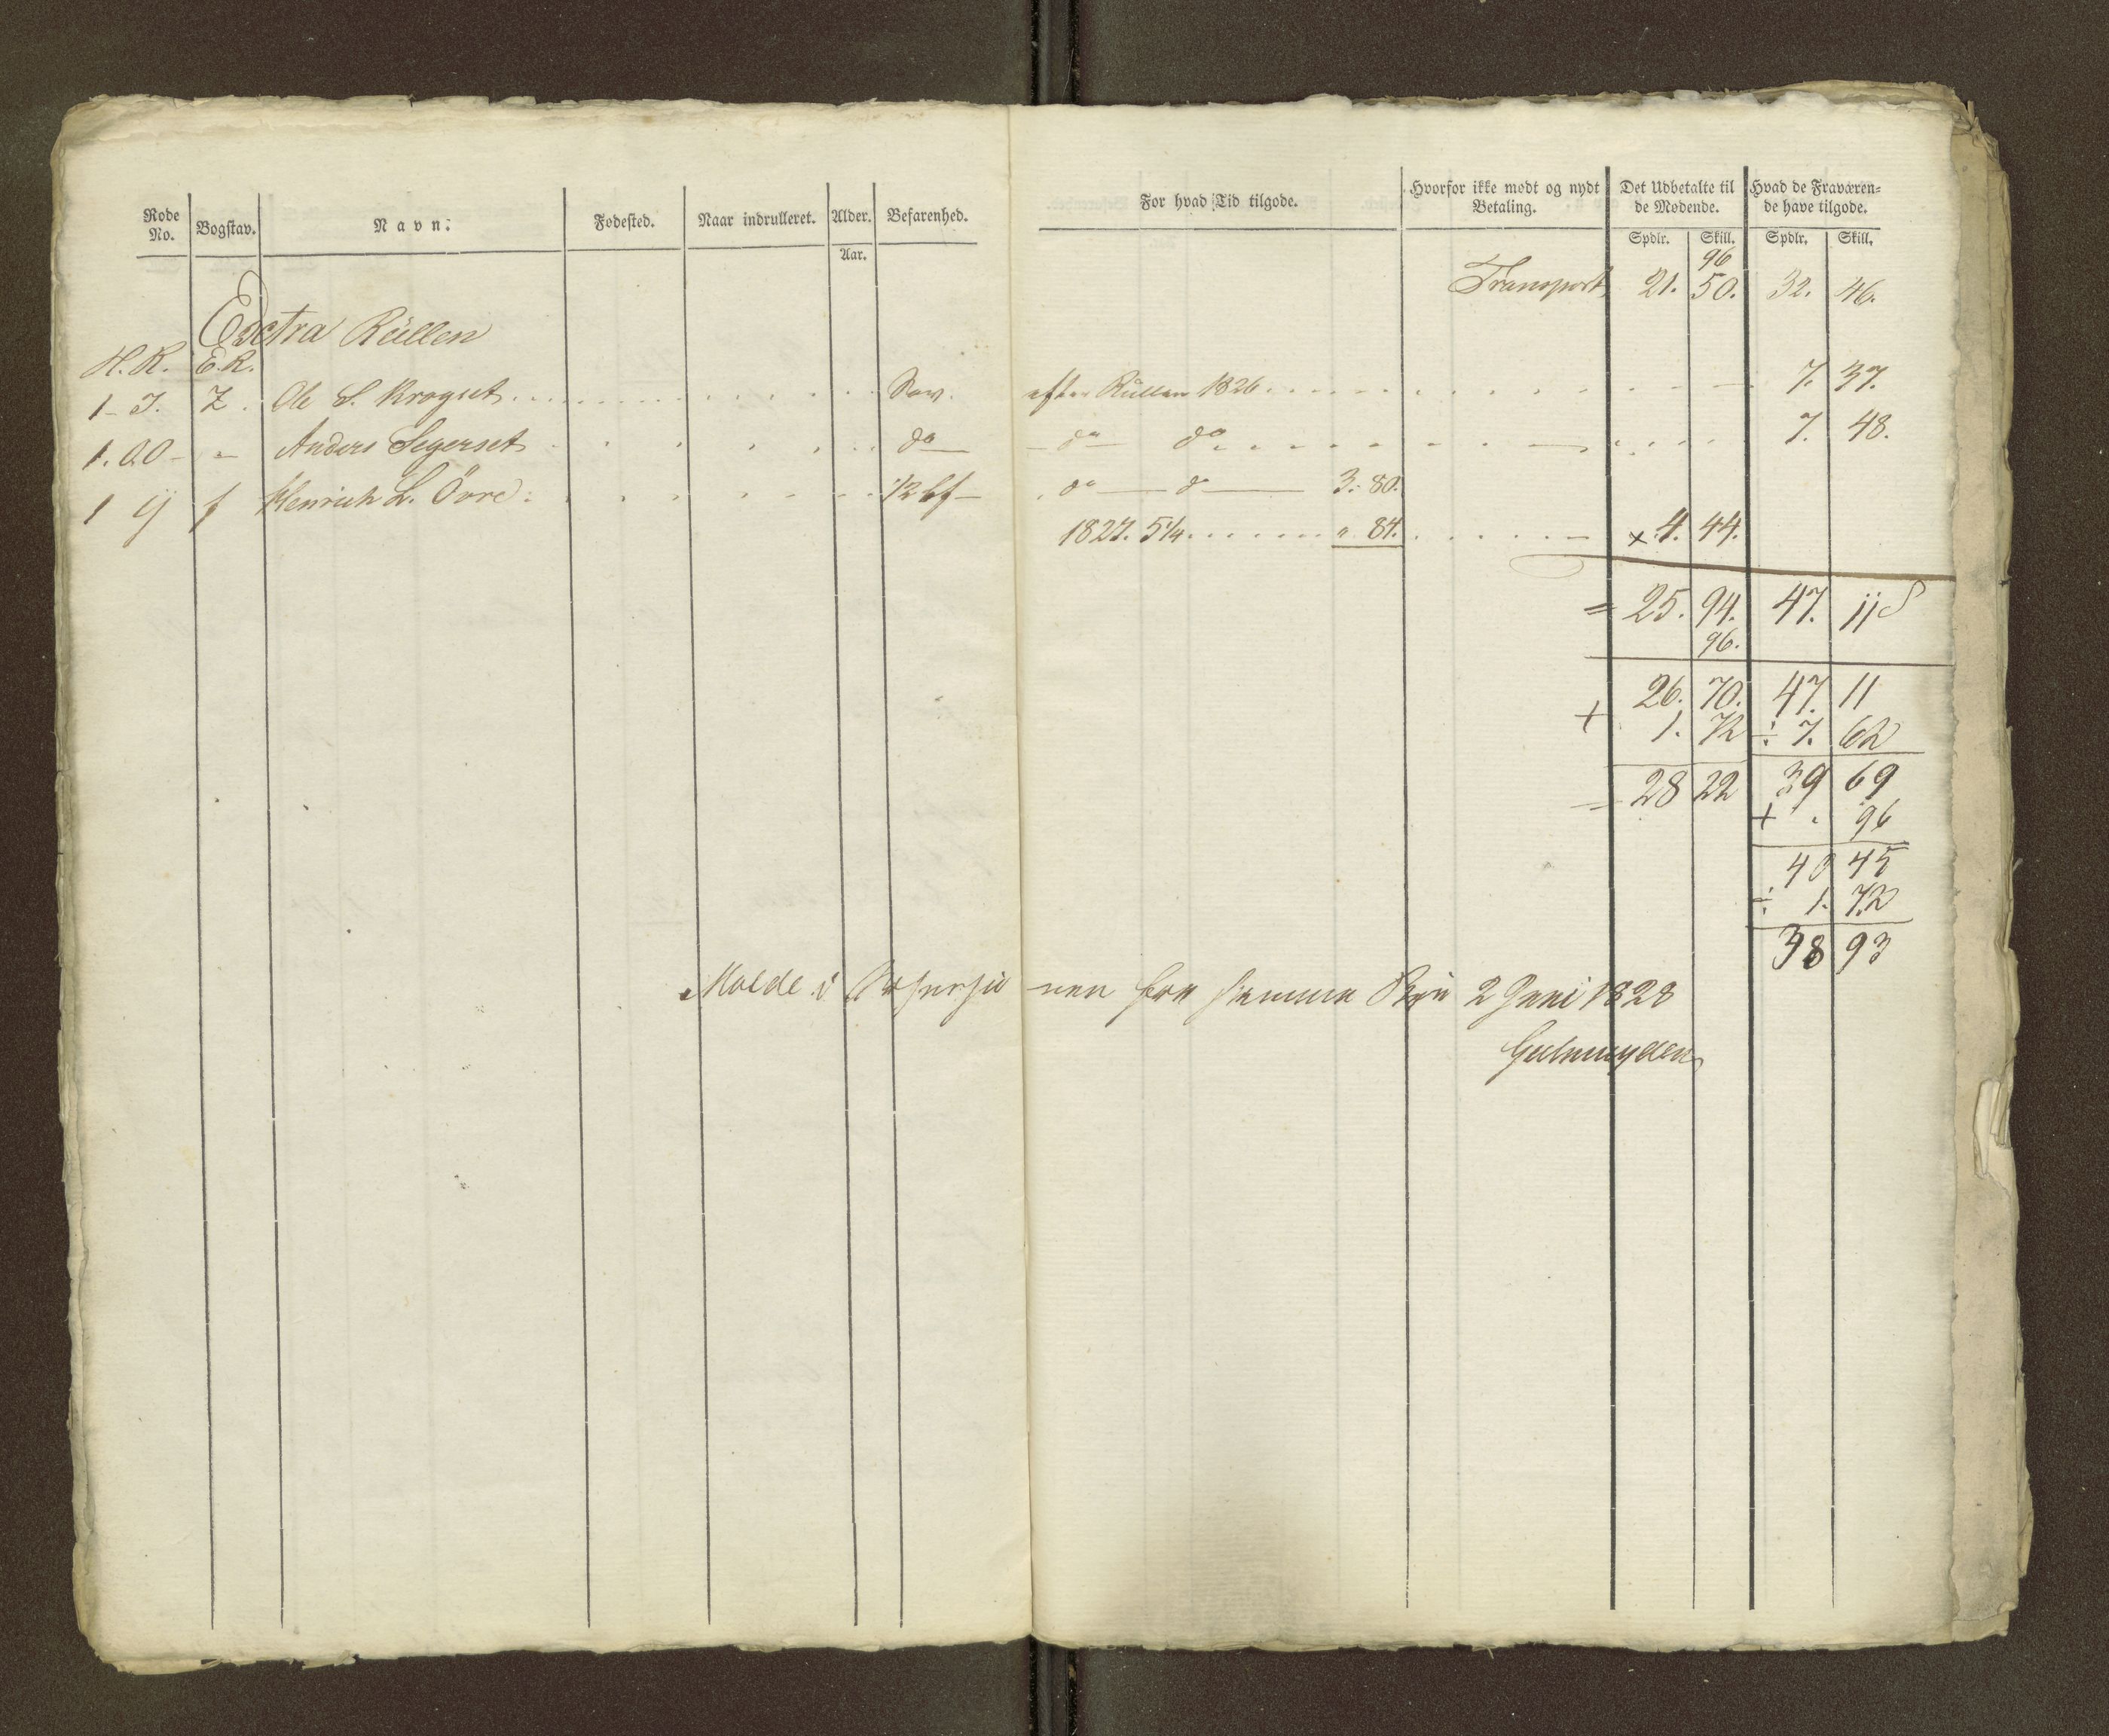 Rode No. Bogstav. Navn: Fodested. Naar indrulleret. Alder. Befarenhed. For hvad Tid tilgode. Hvorfor ikke modt og nydt Betaling. Det Udbetalte til de Modende. Hvad de Fraværen= de have tilgode.
Aar. Spdlr. Skill. Spdlr. Skill.
96
Transport 21. 50. 32. 46.
Extra Rüllen
H.R. E.R.
1 - J. Z. Ole S. Krogset efter Rüllen 1826 7. 37.
1. O.O - - Anders Segerset do - do do 7. 48.
1 ÿ f Henrich L. Övre: 12 bf do do 3: 80.
1827. 5¼ " 84. × 4. 44.
= 25. 94. 47. 11
96.
26. 70. 47. 11
+ 1. 72 ÷ 7. 62
= 28 22 39 69
+ . 96
40 45
÷ 1. 72
38 93
Molde i nen 2 Juni 1828